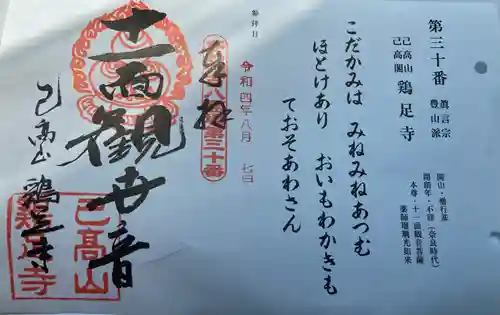 第三十番
眞言宗
豊山派
己高山
己高閣
鶏足寺
開山・僧行基
開創年・不詳（奈良時代）
本尊・十一面観音菩薩
薬師瑠璃光如来
こだかみは みねみねあつむ
ほとけあり おいもわかきも
ておそあわさん
参拝日
令和四年八月 七日
奉拝
第三十番
十一面観世音
己高山 鶏足寺
己高山
鶏足寺